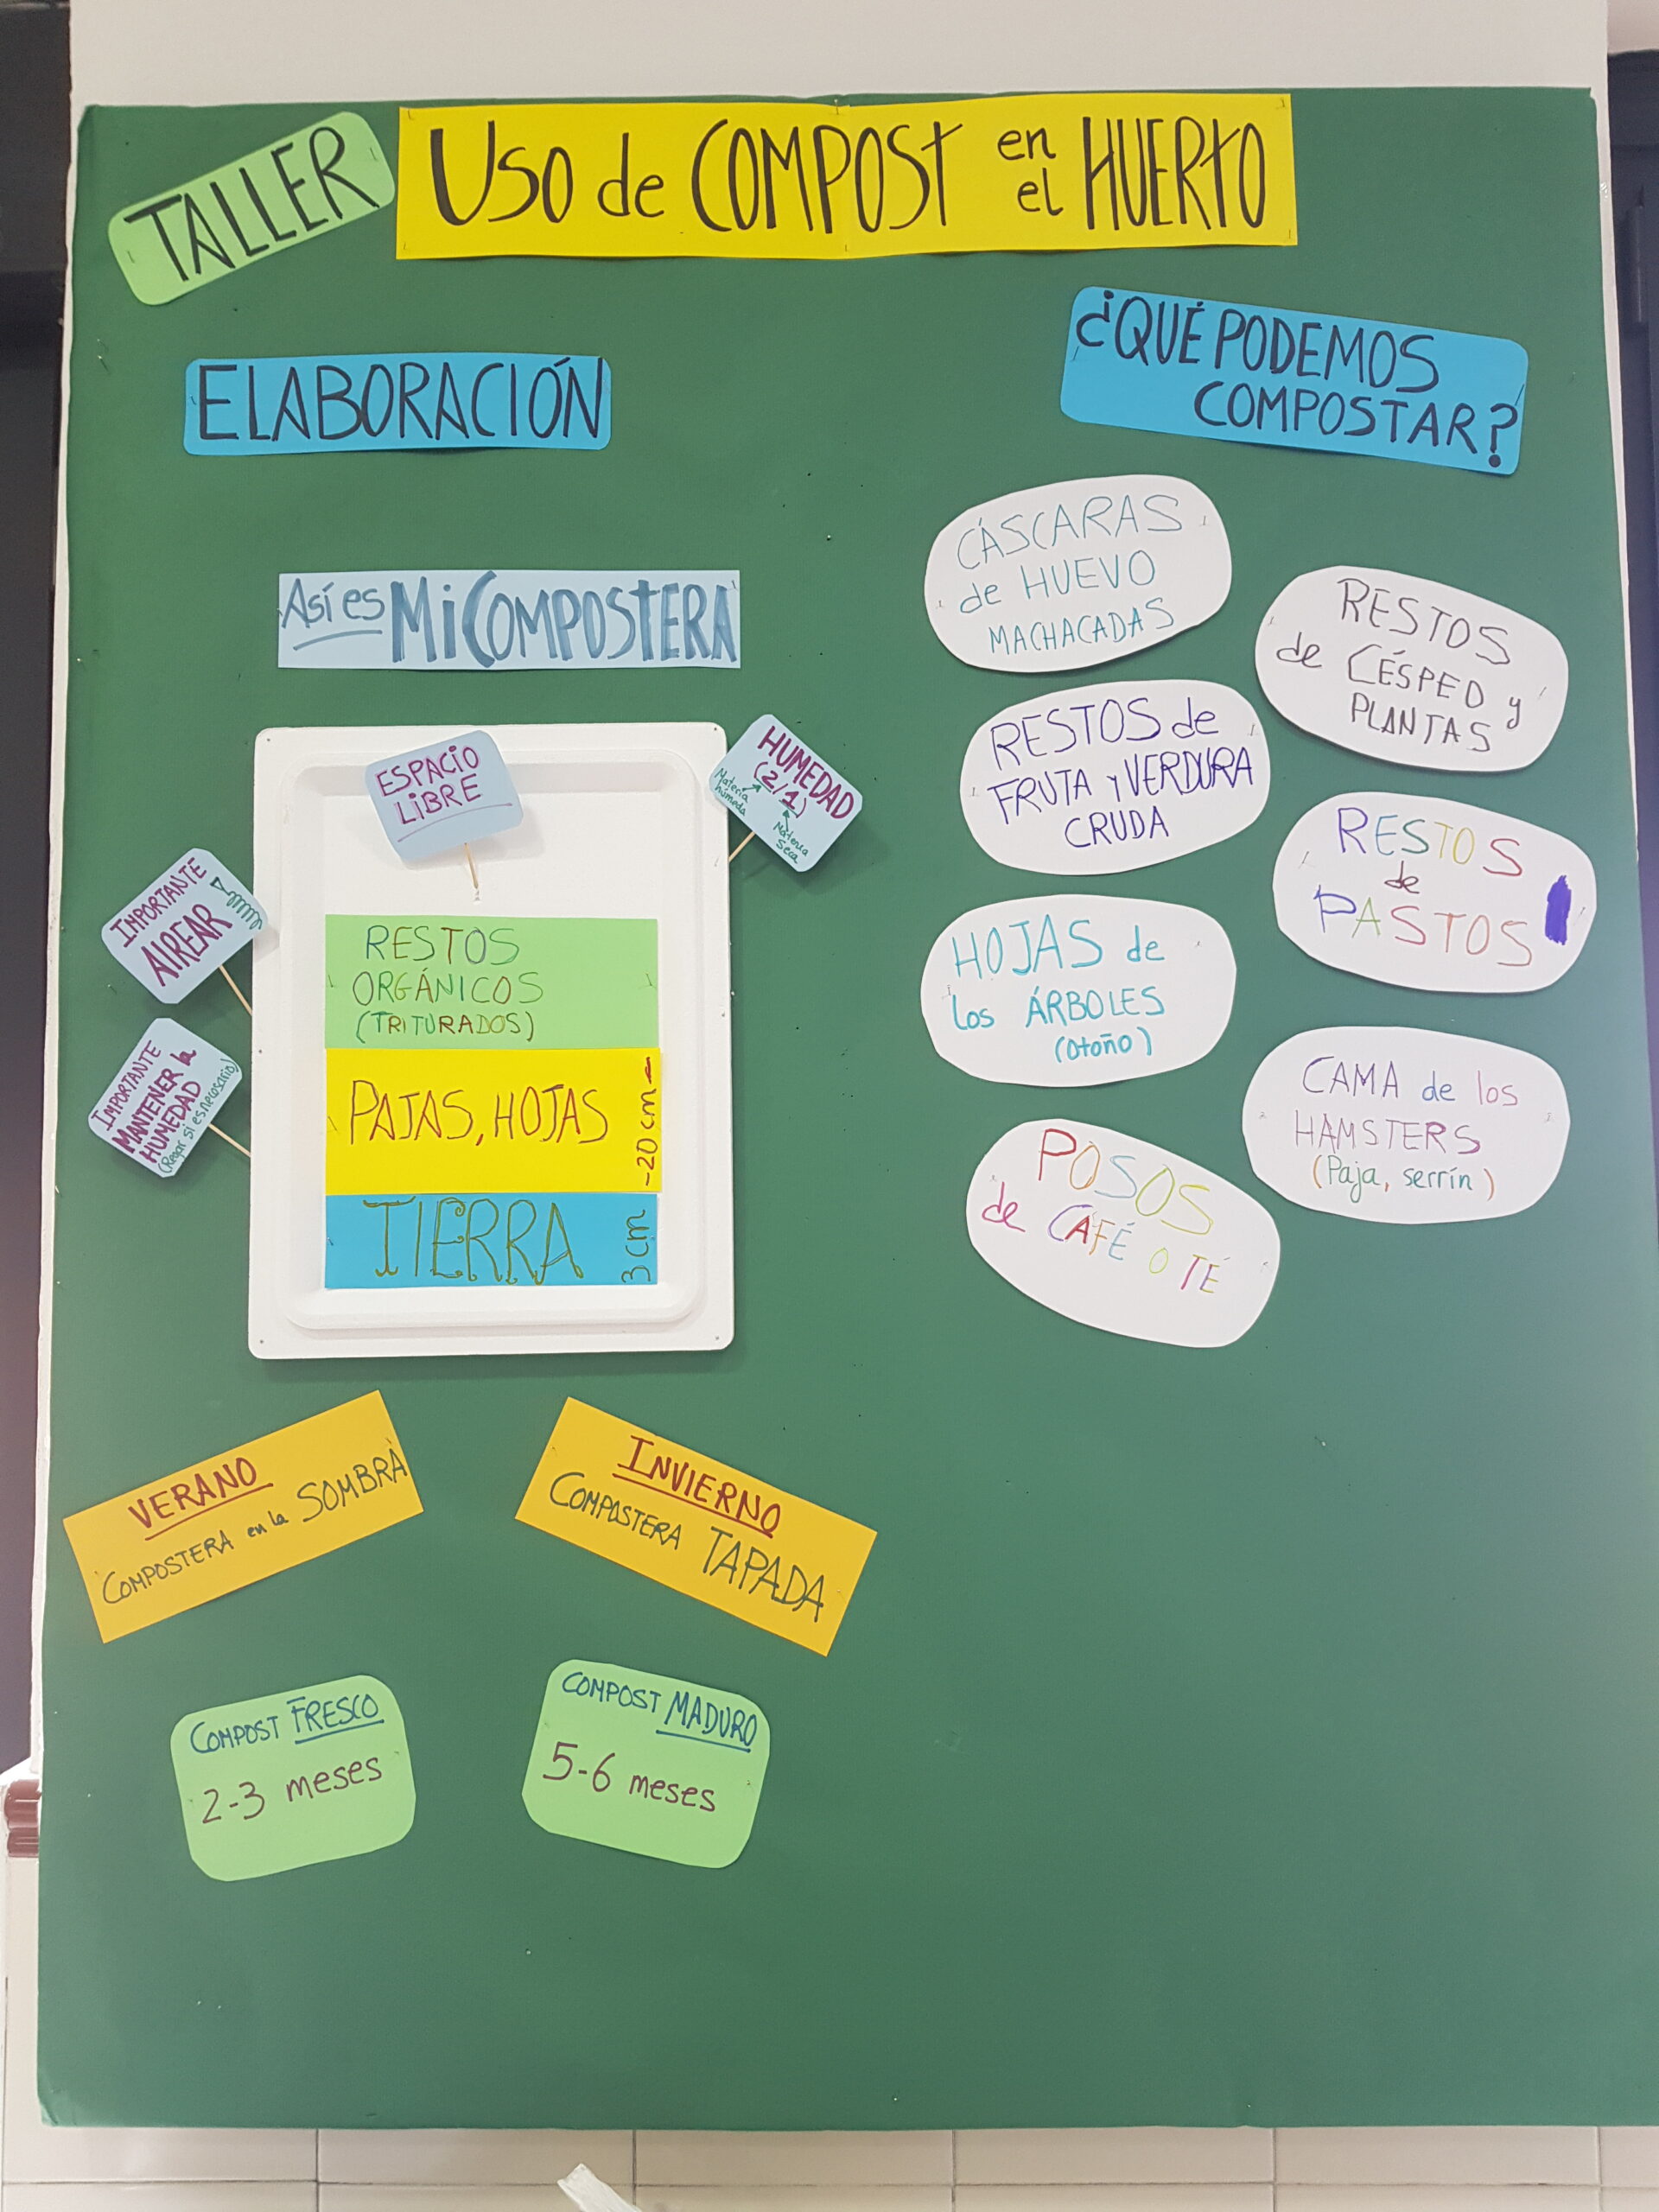 TALLER
USO de COMPOST en
el HUERTO
ELABORACIÓN
Así es MI COMPOSTERA
ESPACIO
LIBRE
HUMEDAD
(2/1)
Materia
húmeda
Materia
Seca
IMPORTANTE
AIREAR
IMPORTANTE
MANTENER la
HUMEDAD
(Regar si es necesario)
RESTOS
ORGÁNICOS
(TRITURADOS)
PAJAS, HOJAS
-20 cm-
TIERRA
3 cm
VERANO
COMPOSTERA en la SOMBRA
INVIERNO
COMPOSTERA TAPADA
COMPOST FRESCO
2-3 meses
COMPOST MADURO
5-6 meses
¿QUÉ PODEMOS
COMPOSTAR?
CÁSCARAS
de HUEVO
MACHACADAS
RESTOS
de CÉSPED y
PLANTAS
RESTOS de
FRUTA Y VERDURA
CRUDA
RESTOS
de
PASTOS
HOJAS de
los ÁRBOLES
(Otoño)
CAMA de los
HAMSTERS
(Paja, serrín)
POSOS
de CAFÉ O TÉ